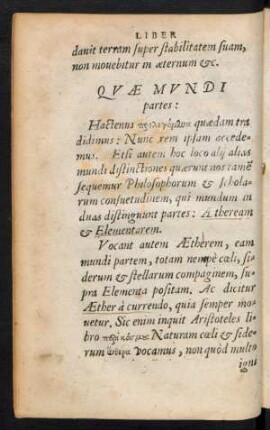 LIBER
davit terram super stabilitatem suam,
non movebitur in æternum &c.
QVÆ MVNDI
partes:
Hactenus προλεγόμενα quædam tra
didimus: Nunc rem ipsam accede-
mus. Etsi autem hoc loco alij alias
mundi distinctiones quærunt nos tamē
sequemur Philosophorum & Schola-
rum consuetudinem, qui mundum in
duas distinguunt partes: Ætheream
& Elementarem.
Vocant autem Ætherem, eam
mundi partem, totam nempè cœli, si-
derum & stellarum compaginem, su-
pra Elementa positam. Ac dicitur
Æther à currendo, quia semper mo-
vetur. Sic enim inquit Aristoteles li-
bro περὶ κόσμου Naturam cœli & side-
rum vocamus, non quòd multo
igni